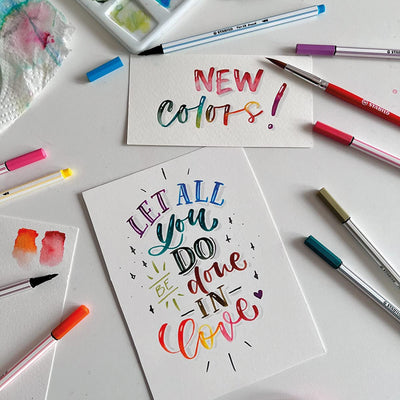 NEW
colors!
LET ALL
you
DO
BE done
IN
love
STABILO
STABILO